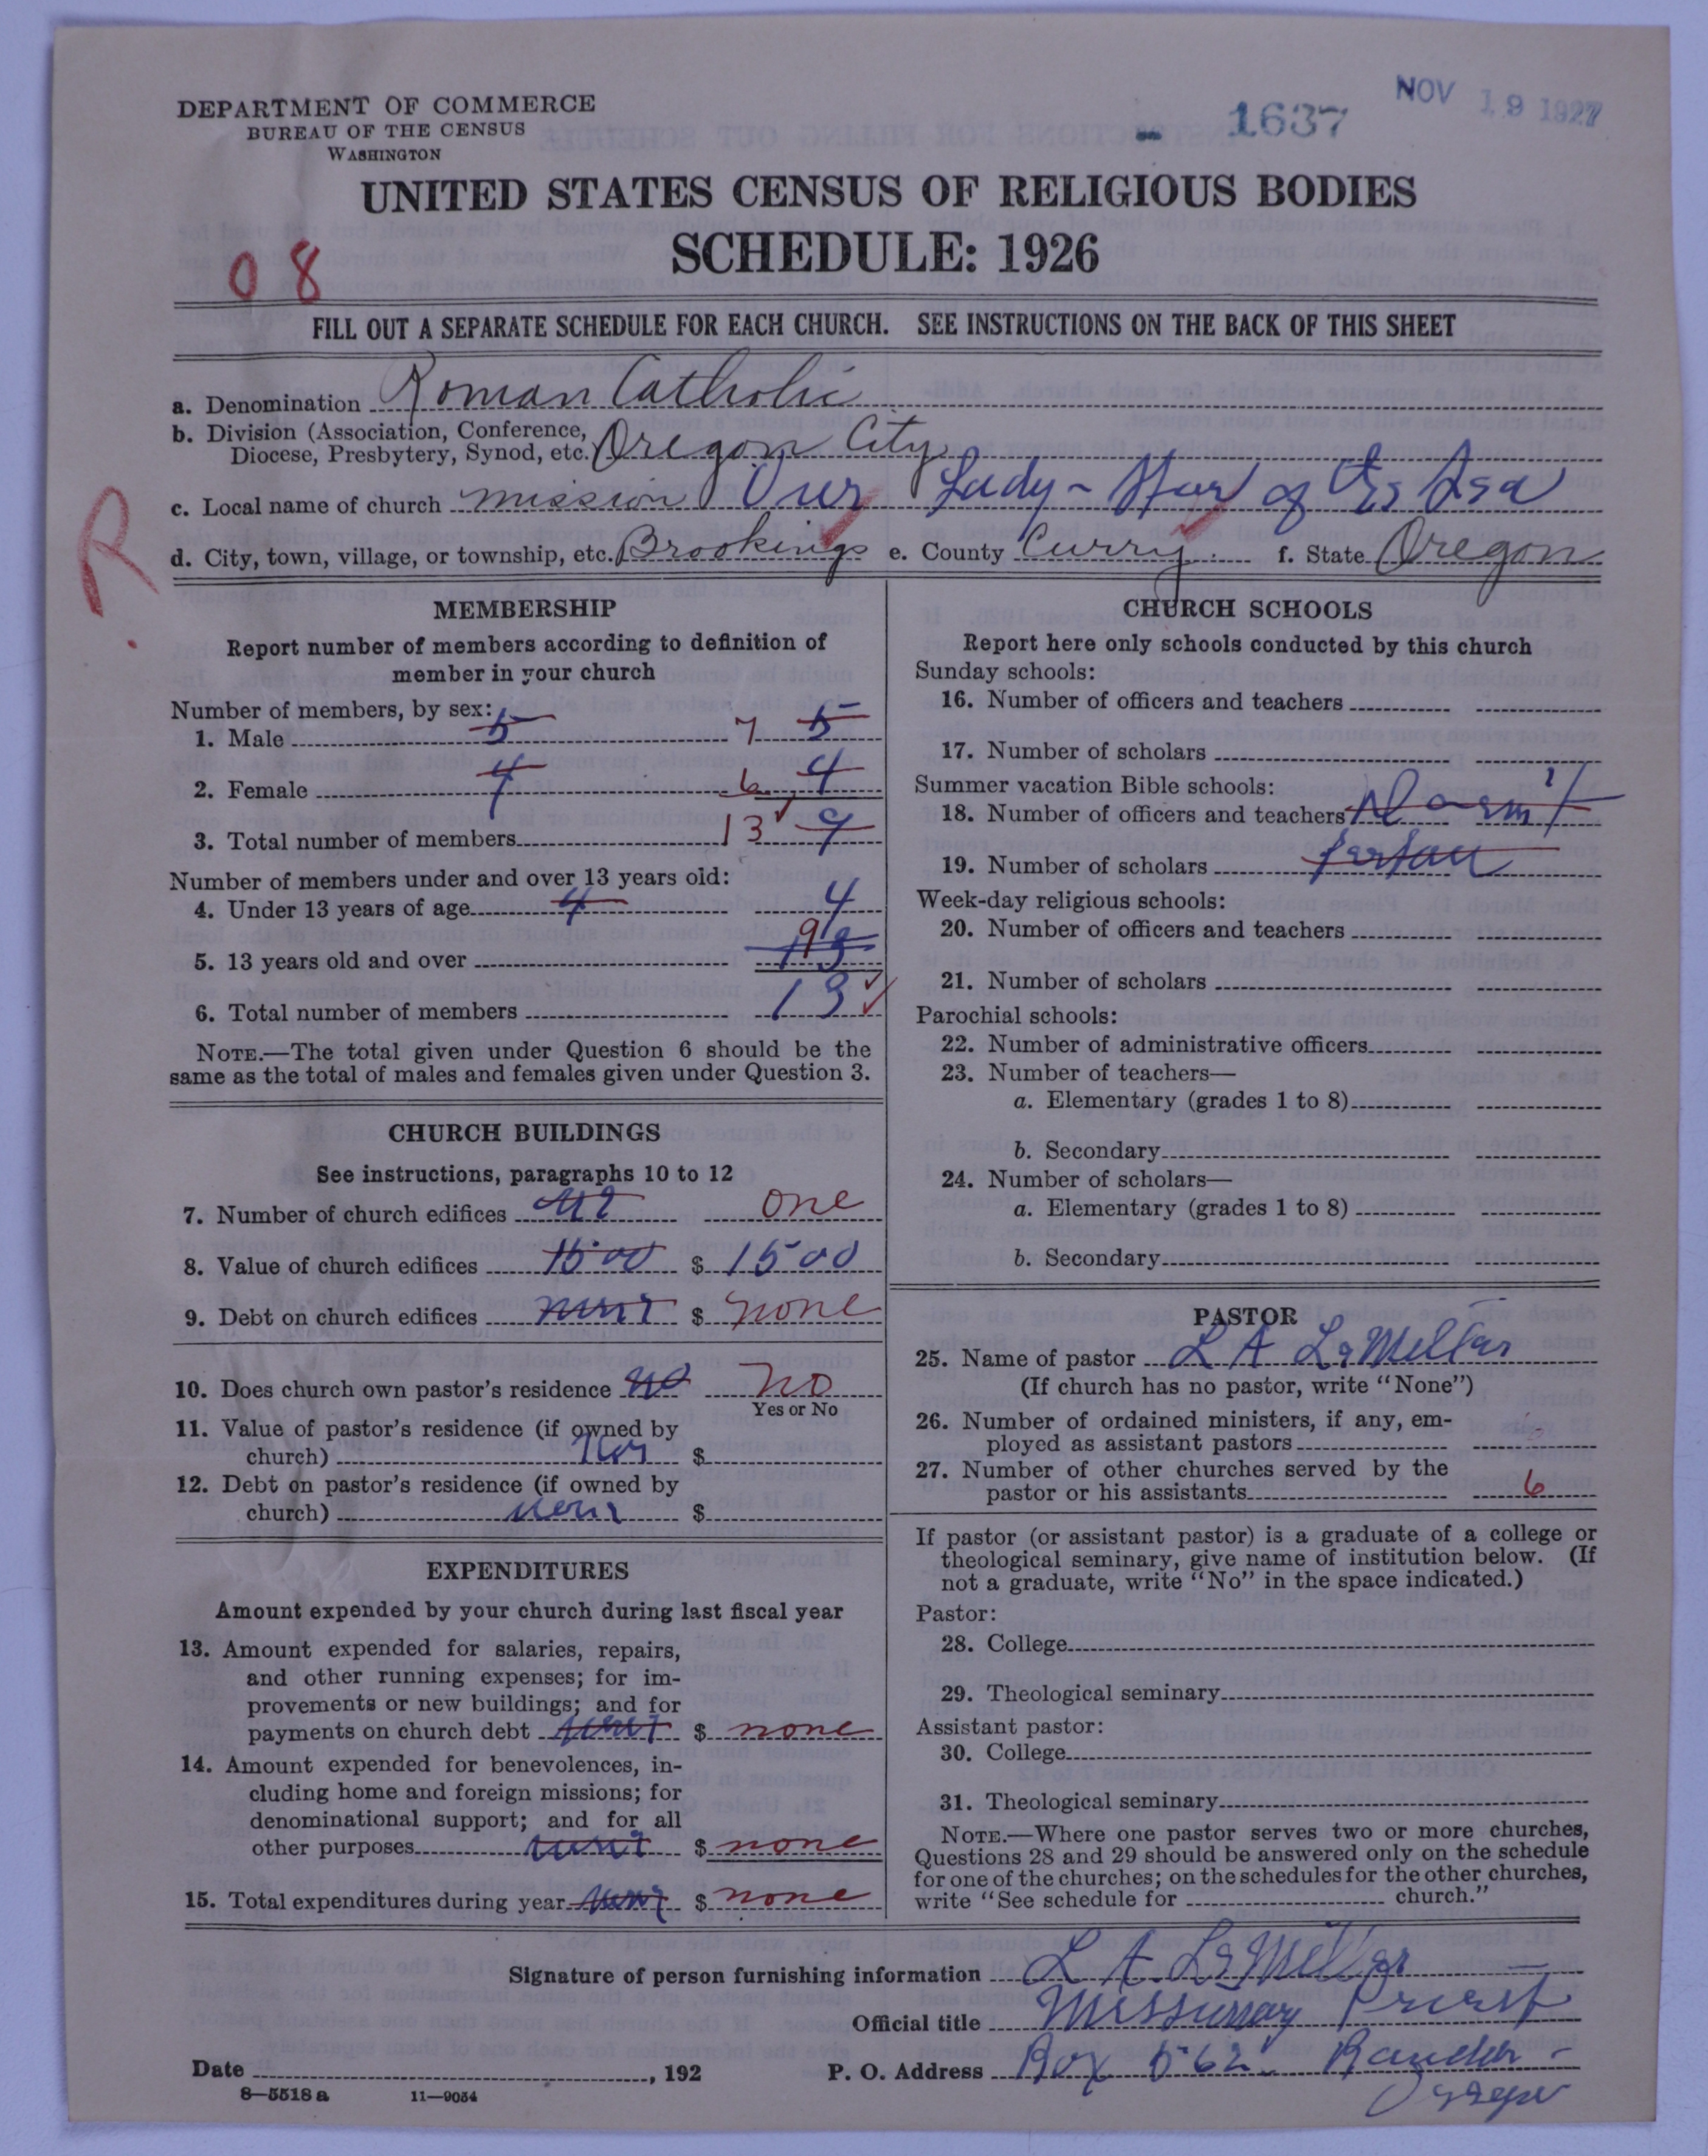 DEPARTMENT OF COMMERCE
BUREAU OF THE CENSUS
WASHINGTON
1637
NOV 19 1927
UNITED STATES CENSUS OF RELIGIOUS BODIES
SCHEDULE: 1926
08
FILL OUT A SEPARATE SCHEDULE FOR EACH CHURCH. SEE INSTRUCTIONS ON THE BACK OF THIS SHEET
a. Denomination Roman Catholic
b. Division (Association, Conference,
Diocese, Presbytery, Synod, etc. Oregon City
c. Local name of church mission Our Lady - Star of the Sea
R
d. City, town, village, or township, etc. Brookings e. County Curry f. State Oregon
MEMBERSHIP
Report number of members according to definition of
member in your church
Number of members, by sex:
1. Male 5 7 5
2. Female 4 6 4
3. Total number of members 13 9
Number of members under and over 13 years old:
4. Under 13 years of age 4 4
5. 13 years old and over 9 13
6. Total number of members 13
NOTE.—The total given under Question 6 should be the
same as the total of males and females given under Question 3.
CHURCH BUILDINGS
See instructions, paragraphs 10 to 12
7. Number of church edifices one
8. Value of church edifices 1500 $ 1500
9. Debt on church edifices none $ none
10. Does church own pastor's residence no No
Yes or No
11. Value of pastor's residence (if owned by
church) $
12. Debt on pastor's residence (if owned by
church) none $
EXPENDITURES
Amount expended by your church during last fiscal year
13. Amount expended for salaries, repairs,
and other running expenses; for im-
provements or new buildings; and for
payments on church debt $ none
14. Amount expended for benevolences, in-
cluding home and foreign missions; for
denominational support; and for all
other purposes $ none
15. Total expenditures during year none $ none
CHURCH SCHOOLS
Report here only schools conducted by this church
Sunday schools:
16. Number of officers and teachers
17. Number of scholars
Summer vacation Bible schools:
18. Number of officers and teachers
19. Number of scholars
Week-day religious schools:
20. Number of officers and teachers
21. Number of scholars
Parochial schools:
22. Number of administrative officers
23. Number of teachers—
a. Elementary (grades 1 to 8)
b. Secondary
24. Number of scholars—
a. Elementary (grades 1 to 8)
b. Secondary
PASTOR
25. Name of pastor L A LeMiller
(If church has no pastor, write "None")
26. Number of ordained ministers, if any, em-
ployed as assistant pastors
27. Number of other churches served by the
pastor or his assistants 6
If pastor (or assistant pastor) is a graduate of a college or
theological seminary, give name of institution below. (If
not a graduate, write "No" in the space indicated.)
Pastor:
28. College
29. Theological seminary
Assistant pastor:
30. College
31. Theological seminary
NOTE.—Where one pastor serves two or more churches,
Questions 28 and 29 should be answered only on the schedule
for one of the churches; on the schedules for the other churches,
write "See schedule for church."
Signature of person furnishing information L. A. LeMiller
Official title Missionary Priest
Date , 192 P. O. Address Box 562 Bandon -
Oregon
8—5518 a 11—9054